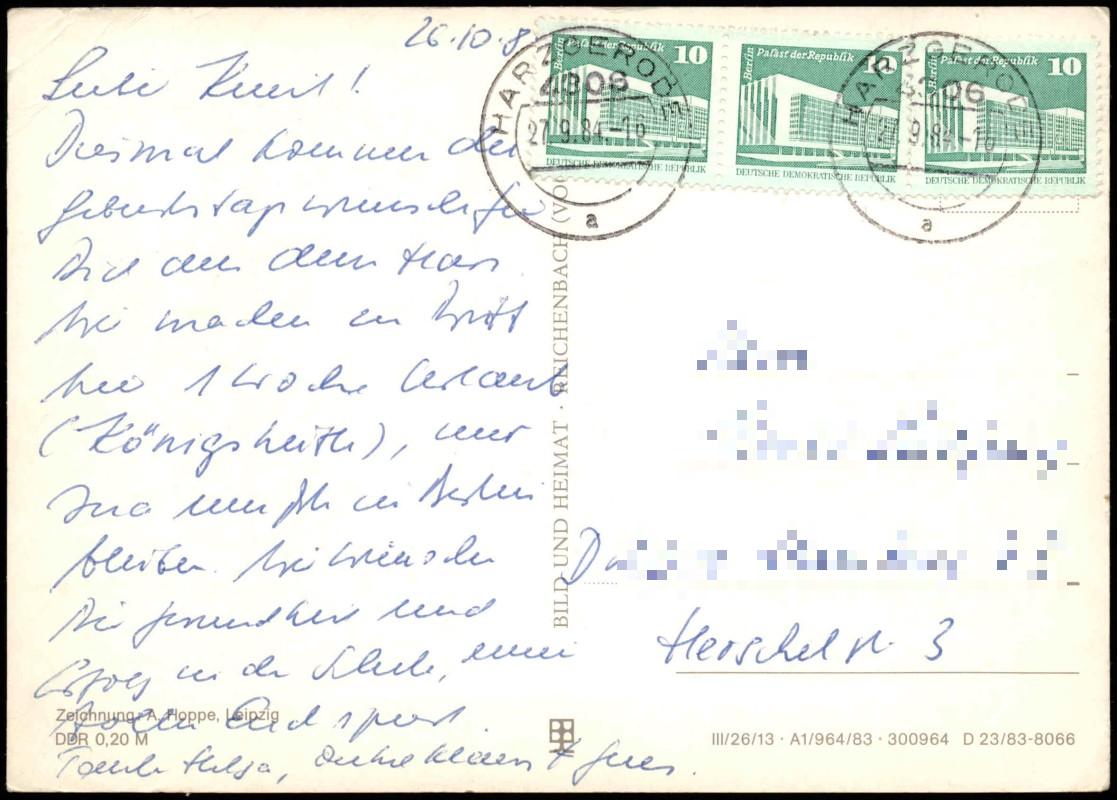 26.10.8
Liebe Knut!
Diesmal kommen die
Geburtstagswünsche für
Dich aus dem Harz.
Wir machen zu Dritt
hier 1 Woche Urlaub
(Königshütte), nur
muß in Berlin
bleiben. Wir wünschen
Dir Gesundheit und
Erfolg in der Schule, einen
Endspurt.
Tante Helga, Onkel Klaus +
Zeichnung: A. Hoppe, Leipzig
DDR 0,20 M
BILD UND HEIMAT · REICHENBACH (VO
HARZGERODE
4306
27.9.84-16
a
Berlin Palast der Republik 10
DEUTSCHE DEMOKRATISCHE REPUBLIK
Berlin Palast der Republik 10
DEUTSCHE DEMOKRATISCHE REPUBLIK
Berlin Palast der Republik 10
DEUTSCHE DEMOKRATISCHE REPUBLIK
HARZGERODE
4306
27.9.84-16
a
Herschelstr. 3
III/26/13 · A1/964/83 · 300964 D 23/83-8066